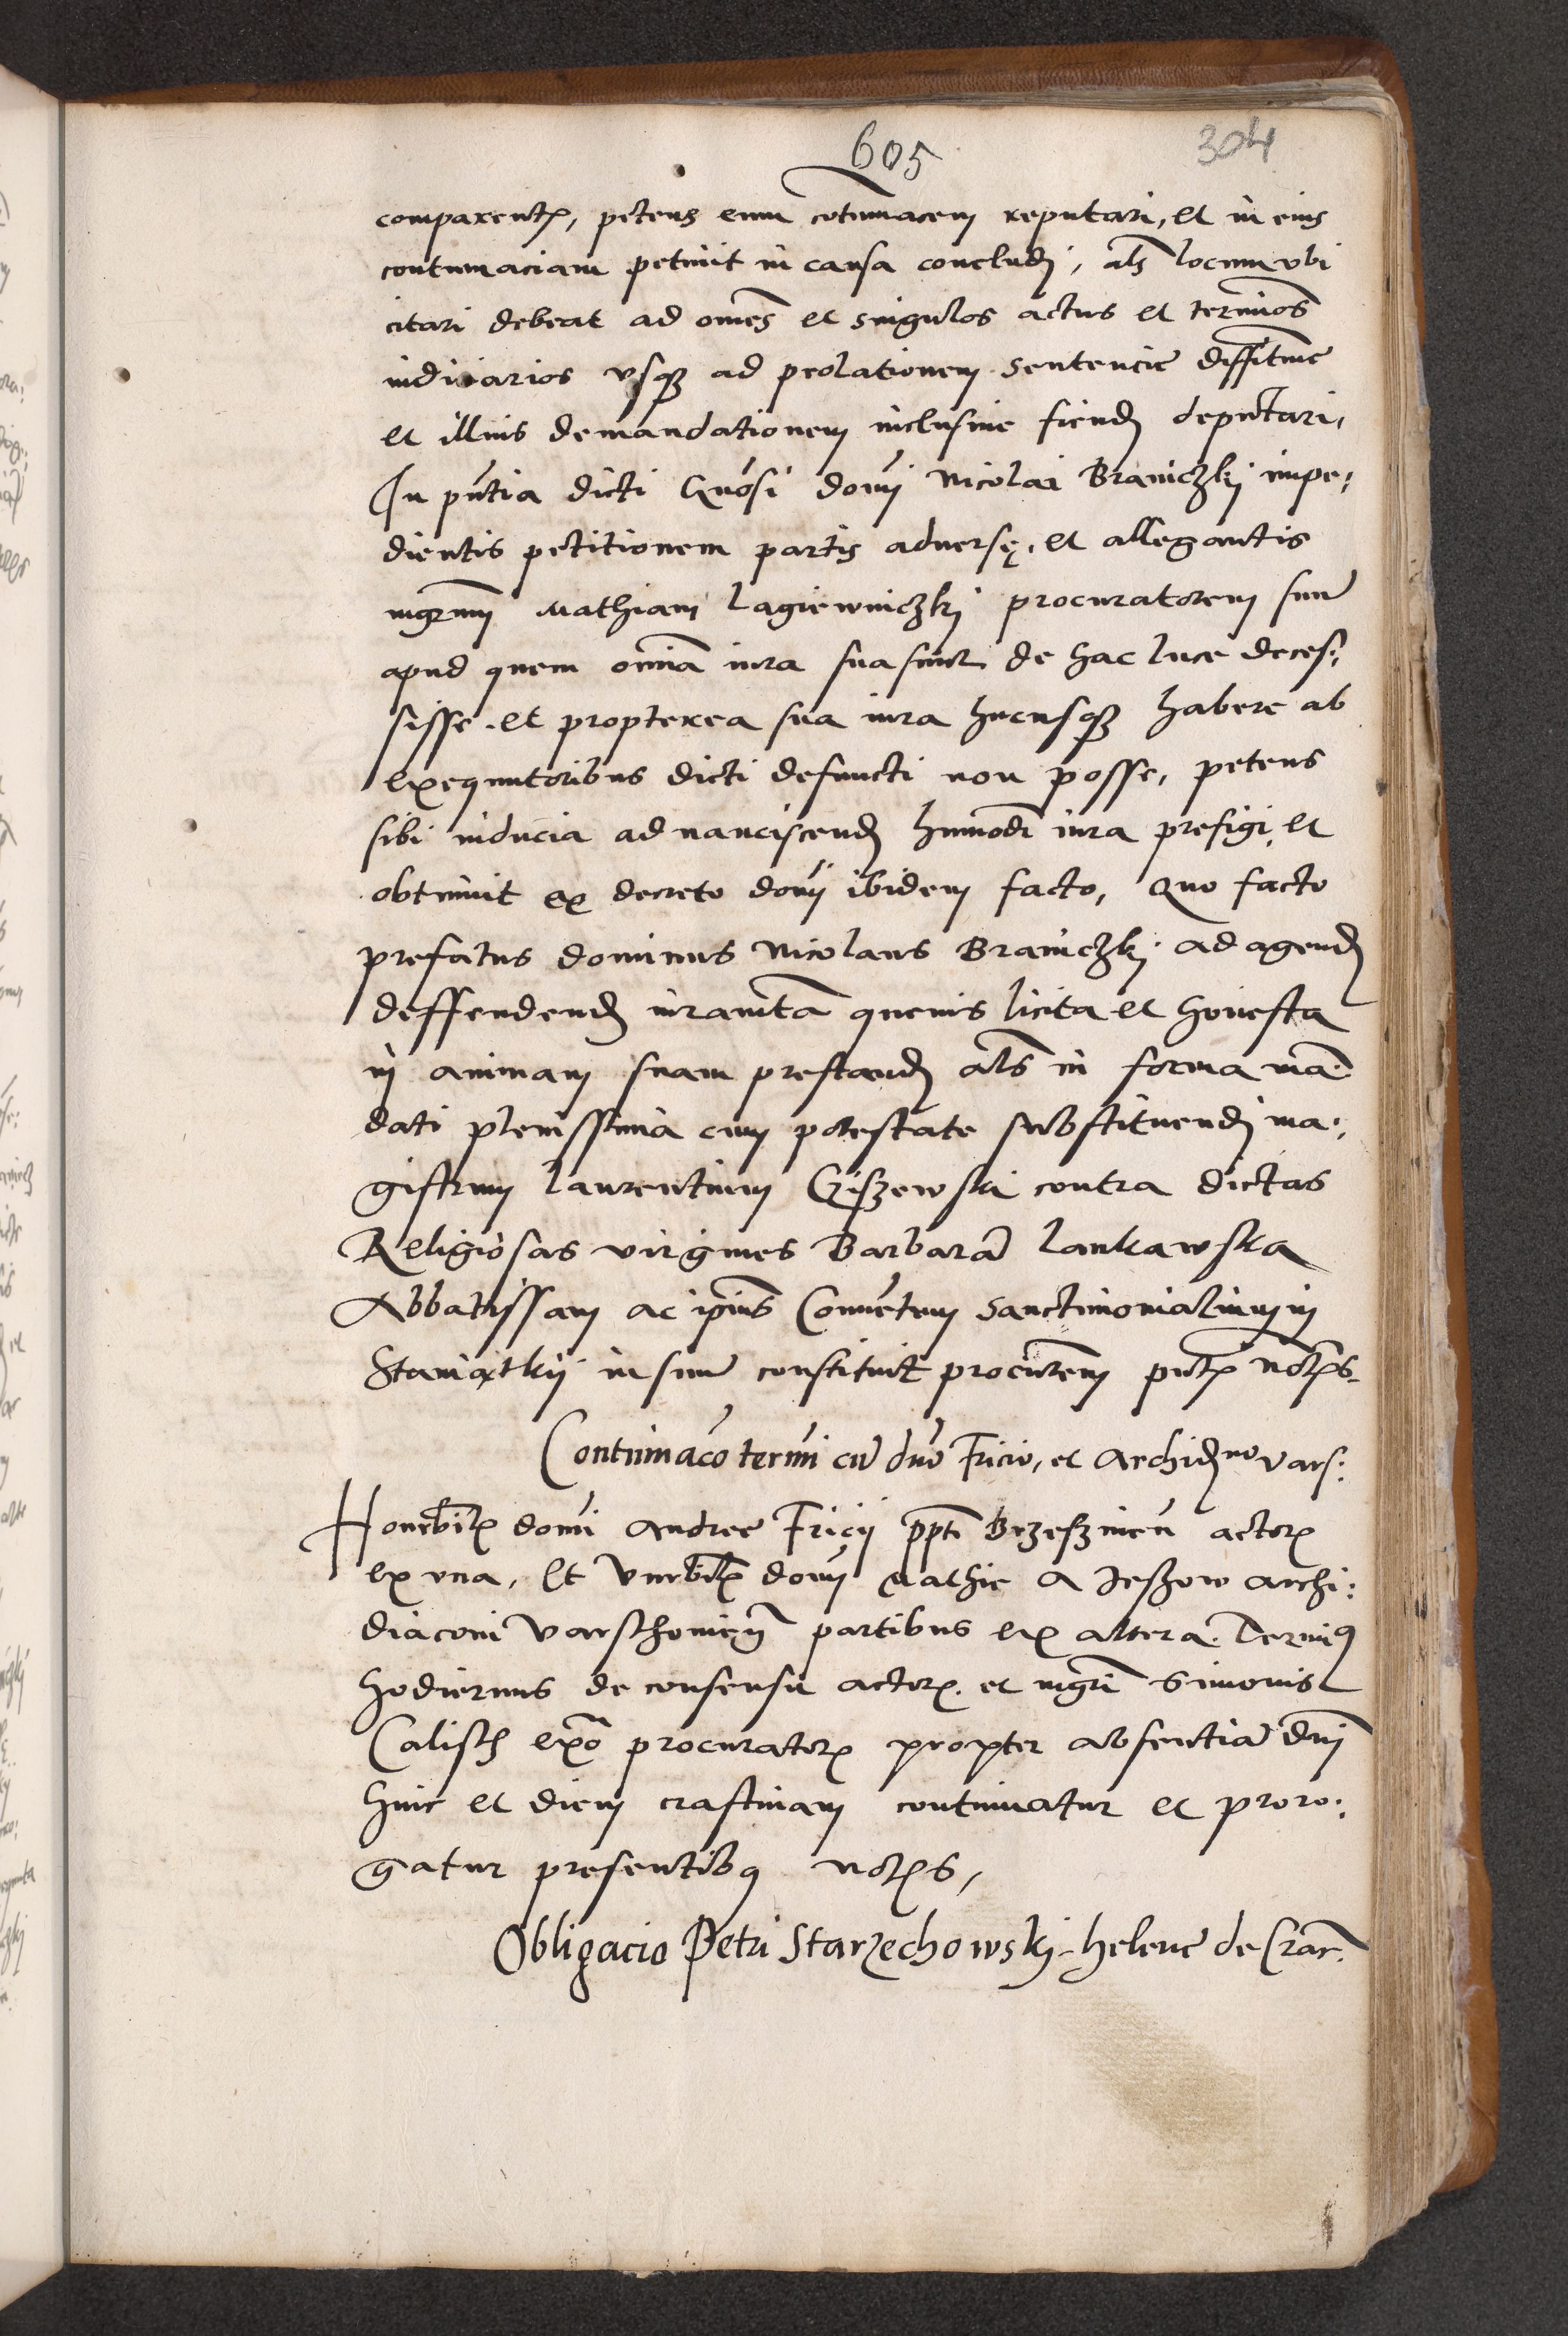 605
304
comparentis, petens eum cotumacem reputari, et in eius
contumaciam petiuit in causa concludj, als locum vbi
citari debeat ad omēs et singulos actus et terminos
iudiciarios vsqȝ ad prolationem sentencie diffitiue
et illius demandationem inclusiue fiendȝ deputari,
In pn̄tia dicti Gn̄osi domī Nicolai Braniczkj impe:
dientis petitionem partis aduersę, et allegantis
mgr̄um Mathiam Lagiewniczkj procuratorem suū
apud quem omīa iura sua sunt de hac luce deces:
sisse et propterea sua iura hucusqȝ habere ab
exequutoribus dicti defuncti non posse, petens
sibi inducia ad nanciscendȝ huiusmodi iura prefigi, et
obtinuit ex decreto domī ibidem facto, Quo facto
prefatus dominus Nicolaus Braniczkj ad agendȝ
deffendendȝ iuramta queuis licita et honesta
in animam suam prestandȝ als in forma man
dati plenissima cum potestate substituendj ma:
gistrum Laurentium Cziszewski contra dictas
Religiosas virgines Barbarā Lankawska
Abbatissam ac ipīus Conuētum sanctimonialium in
Staniątkij in suū constituit procūtorem pn̄tibus notarijs
Contiinuaō termī cū dnō Fricio, et Archidno vars:
Honorabilis domī Andree Fricij ppti Brzeszinen actoris
ex vna, Et Venerabilis domī Mathie a Jeszow archi:
diaconi Varschouien partibus ex altera. Terminus
hodiernus de consensu actoris et mgri Simonis
Calisch exo procuratoris propter absentiā dnī
huic et diem crastinam continuatur et proro:
gatur presentibus notarijs,
Obligacio Petri Starzechowskj helene de Crac.